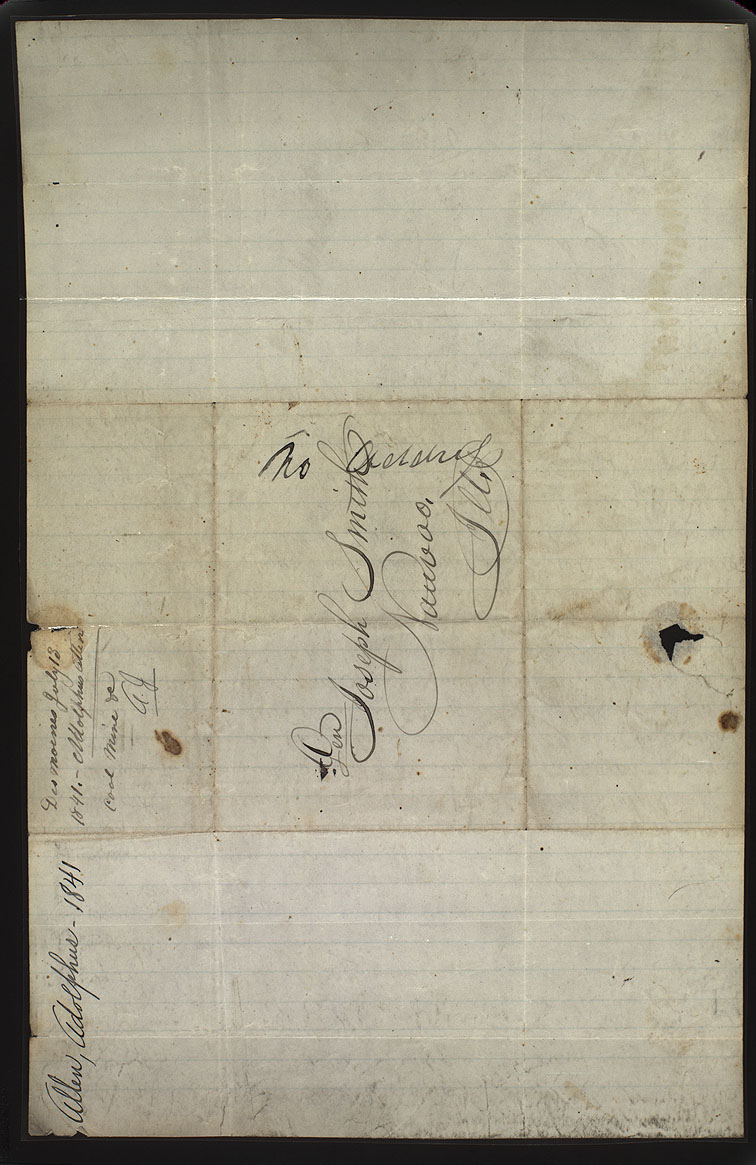 No Address
Gen Joseph Smith
Nauvoo,
Ills
Des moines July 13
1841.- Adolphus allen
Coal Mine &c
Allen, Adolphus - 1841